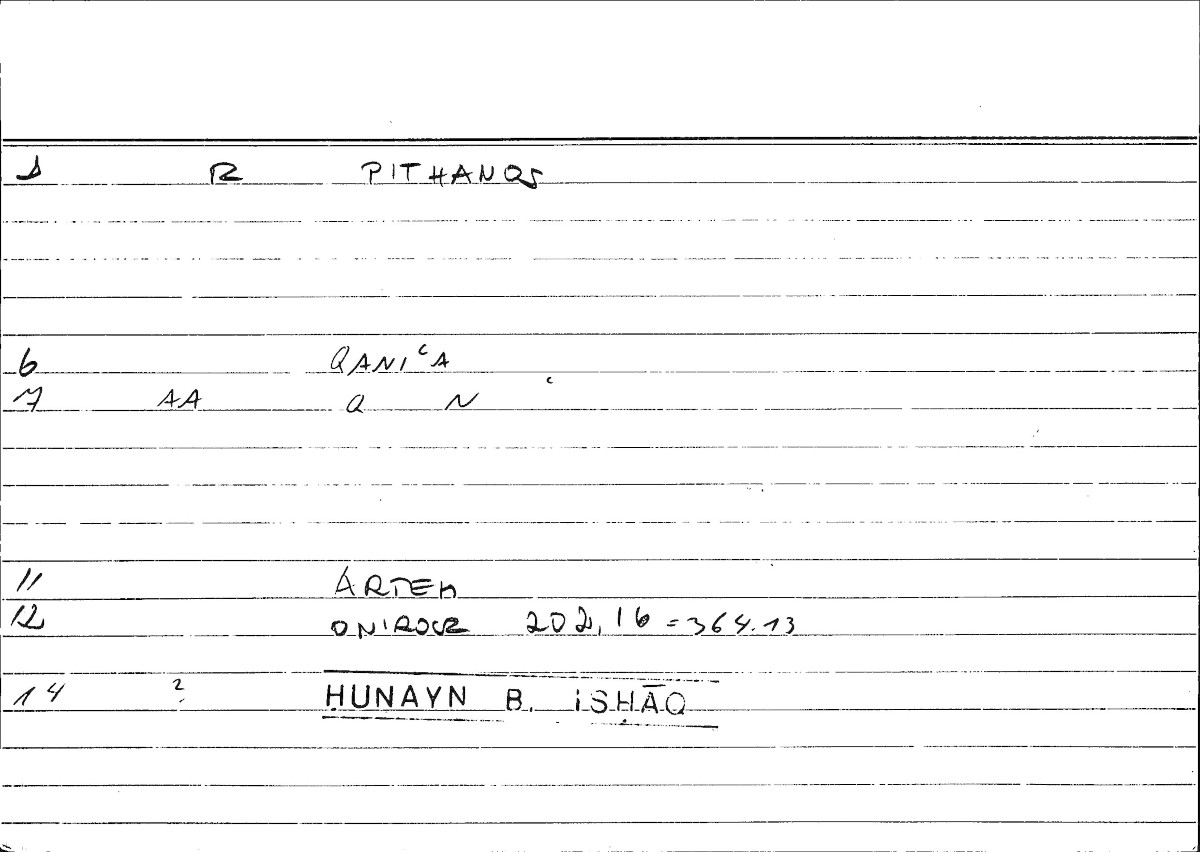 1 R PITHANOS
6 QANIᶜA
7 AA Q N ᶜ
11 ARTEM
12 ONIROCR 202,16 = 364.13
14 ? ḤUNAYN B. ISḤĀQ